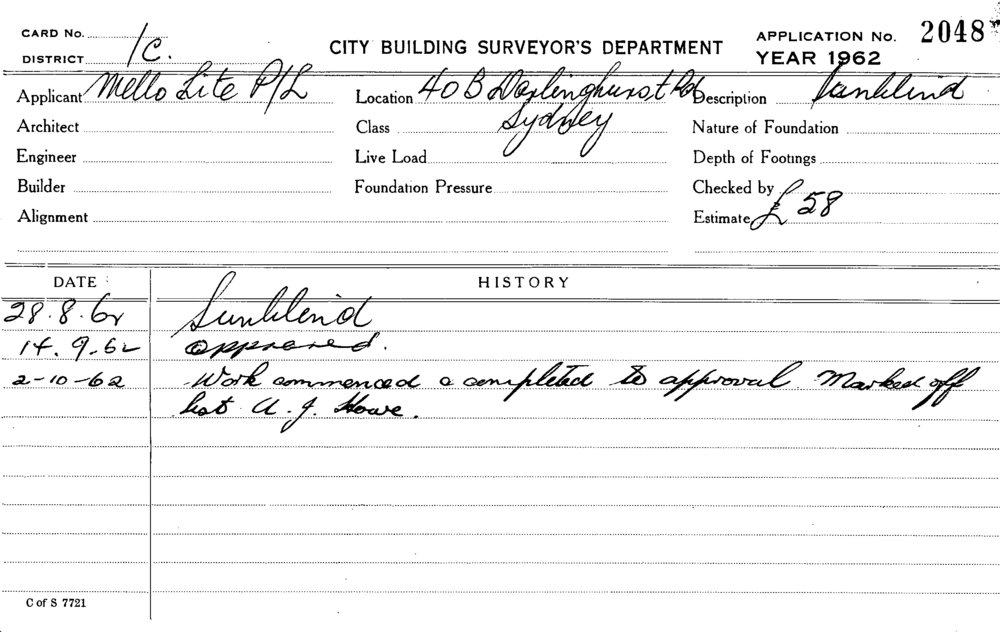 CARD No.
DISTRICT 1C.
CITY BUILDING SURVEYOR'S DEPARTMENT
APPLICATION No. 2048
YEAR 1962
Applicant Mello Lite P/L
Location 40B Darlinghurst Rd
Sydney
Description Sunblind
Architect
Class
Nature of Foundation
Engineer
Live Load
Depth of Footings
Builder
Foundation Pressure
Checked by
Alignment
Estimate £58
DATE
HISTORY
28.8.62 Sunblind
14.9.62 approved.
2-10-62 Work commenced & completed to approval Marked off
list A. J. Howe.
C of S 7721